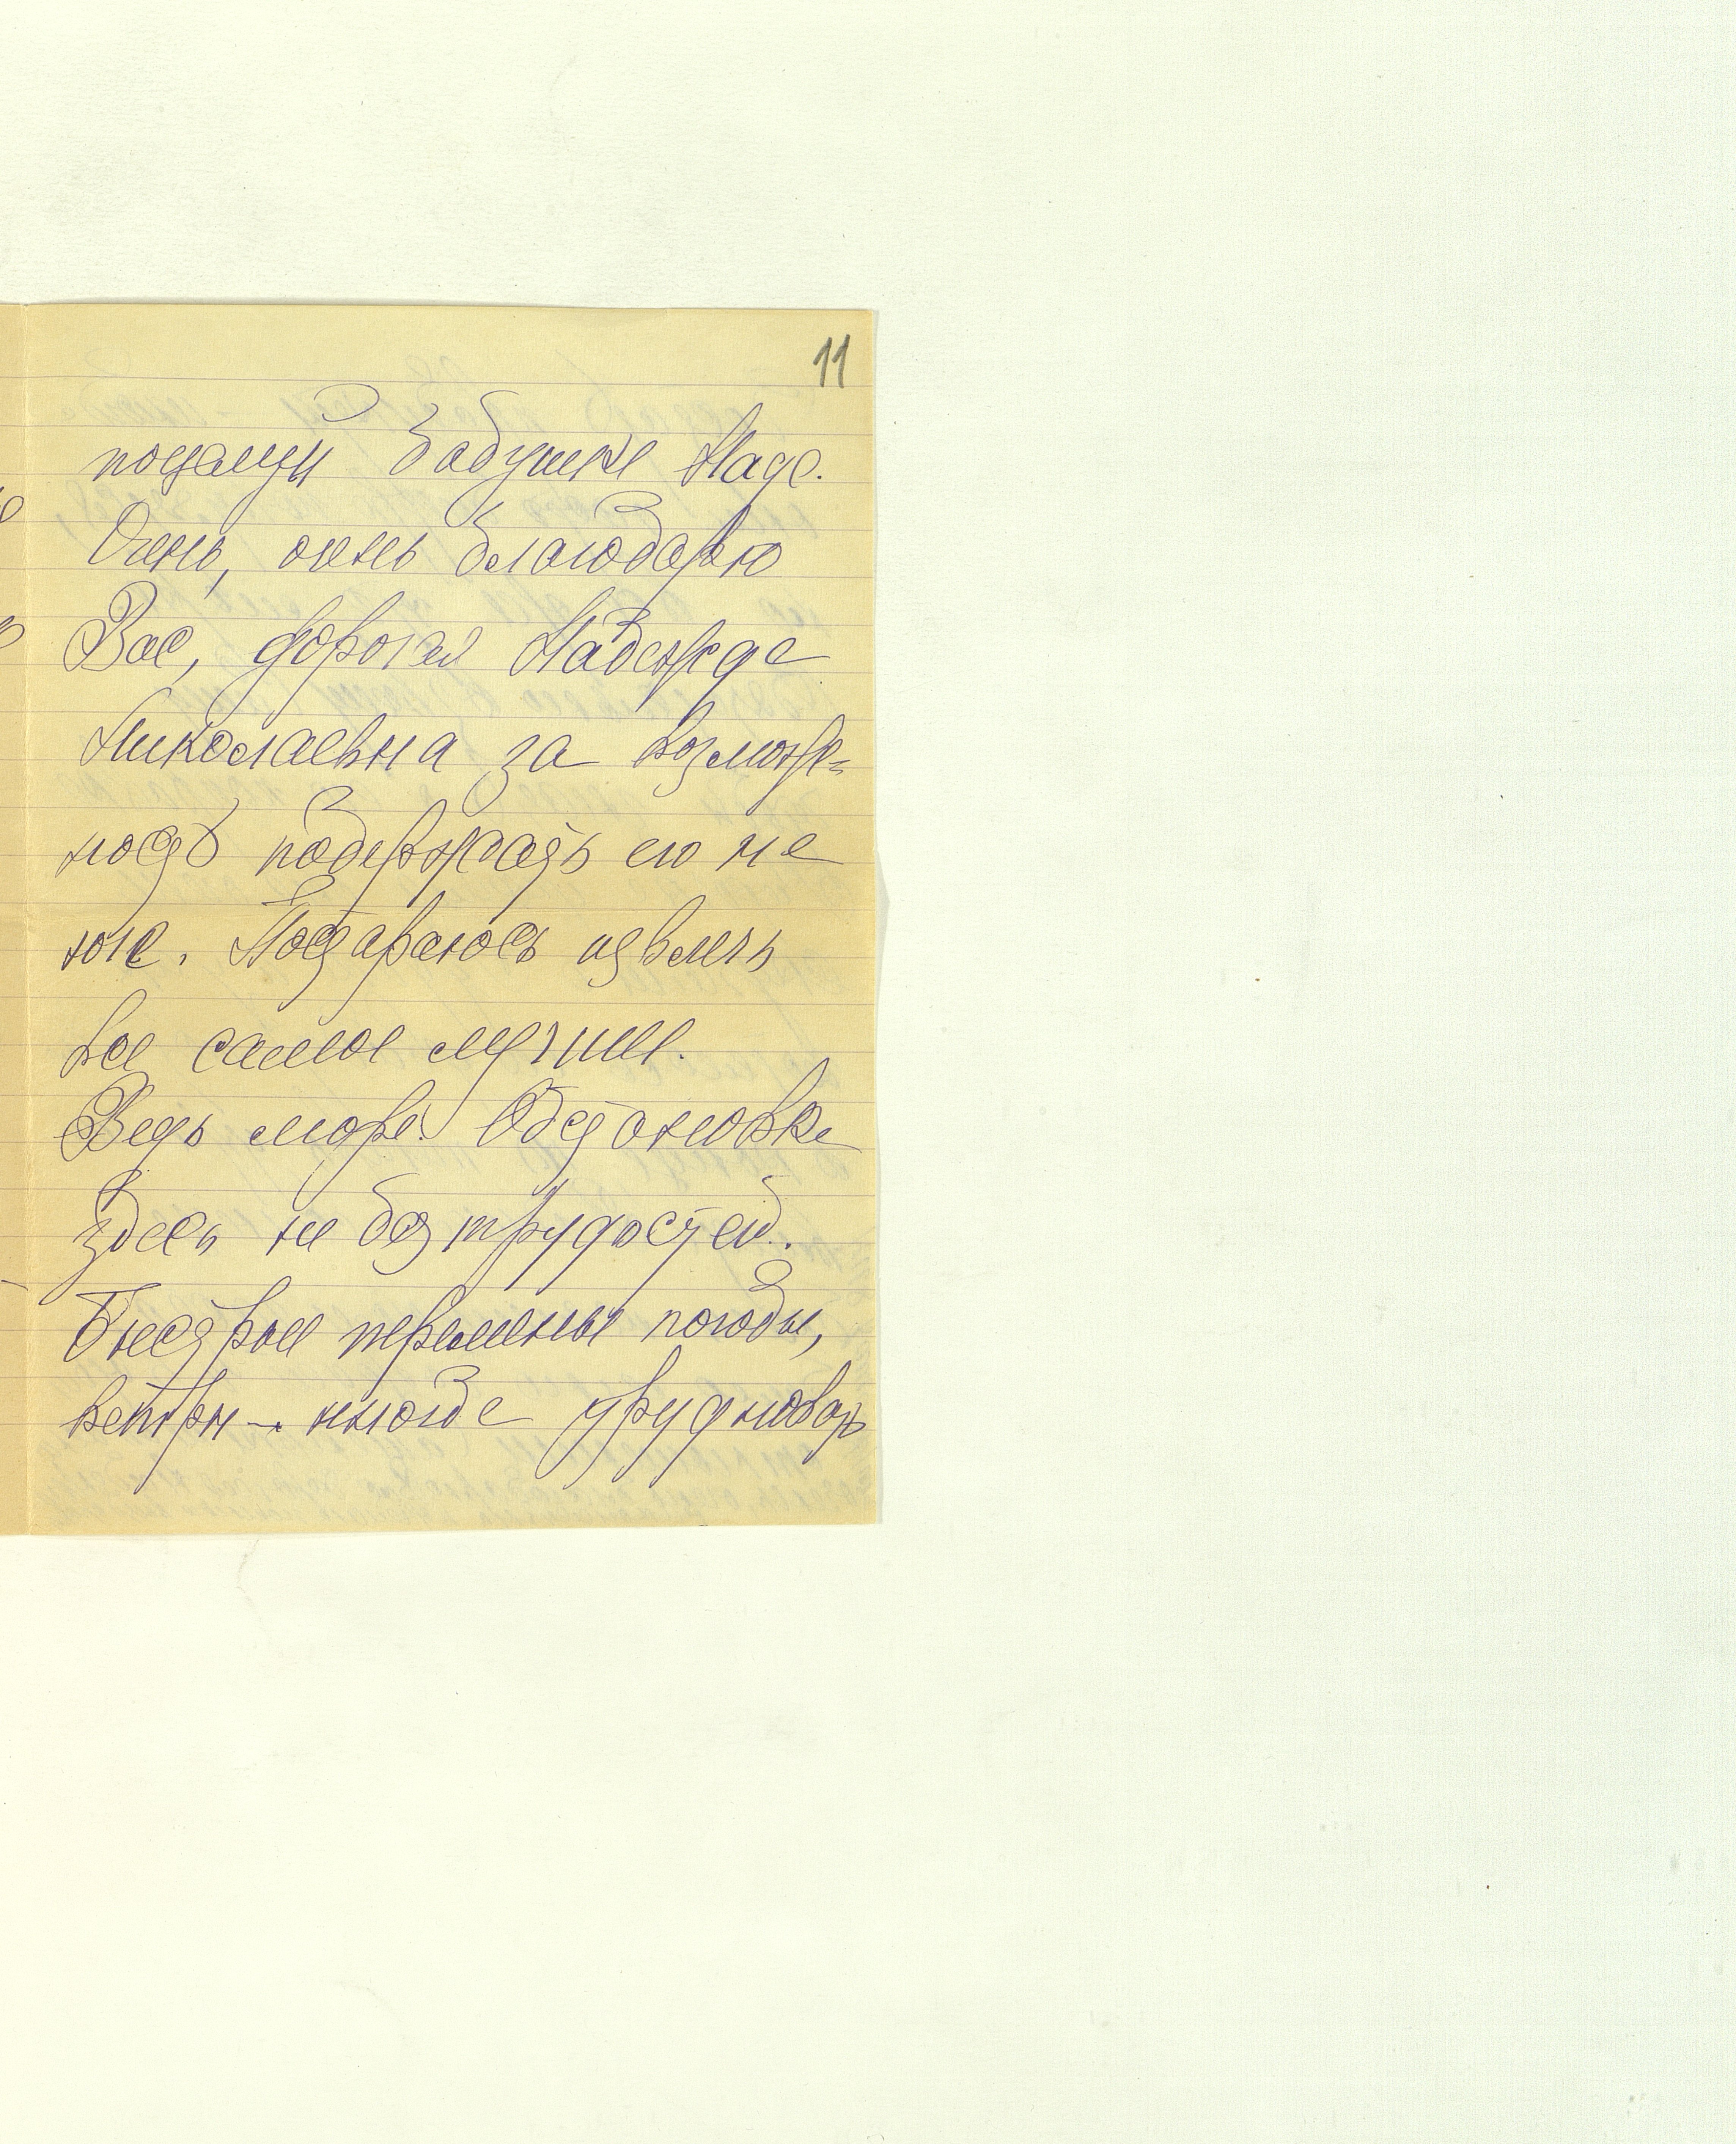 11
поцелуй бабушке Наде.
Очень, очень благодарю
Вас, дорогая Надежда
Николаевна за возмож=
ность подержать его на
юге. Постараюсь извлечь
все самое лучшее.
Ведь море! Обстановка
здесь не без трудостей.
Быстрые перемены погоды,
ветры — иногда трудновато